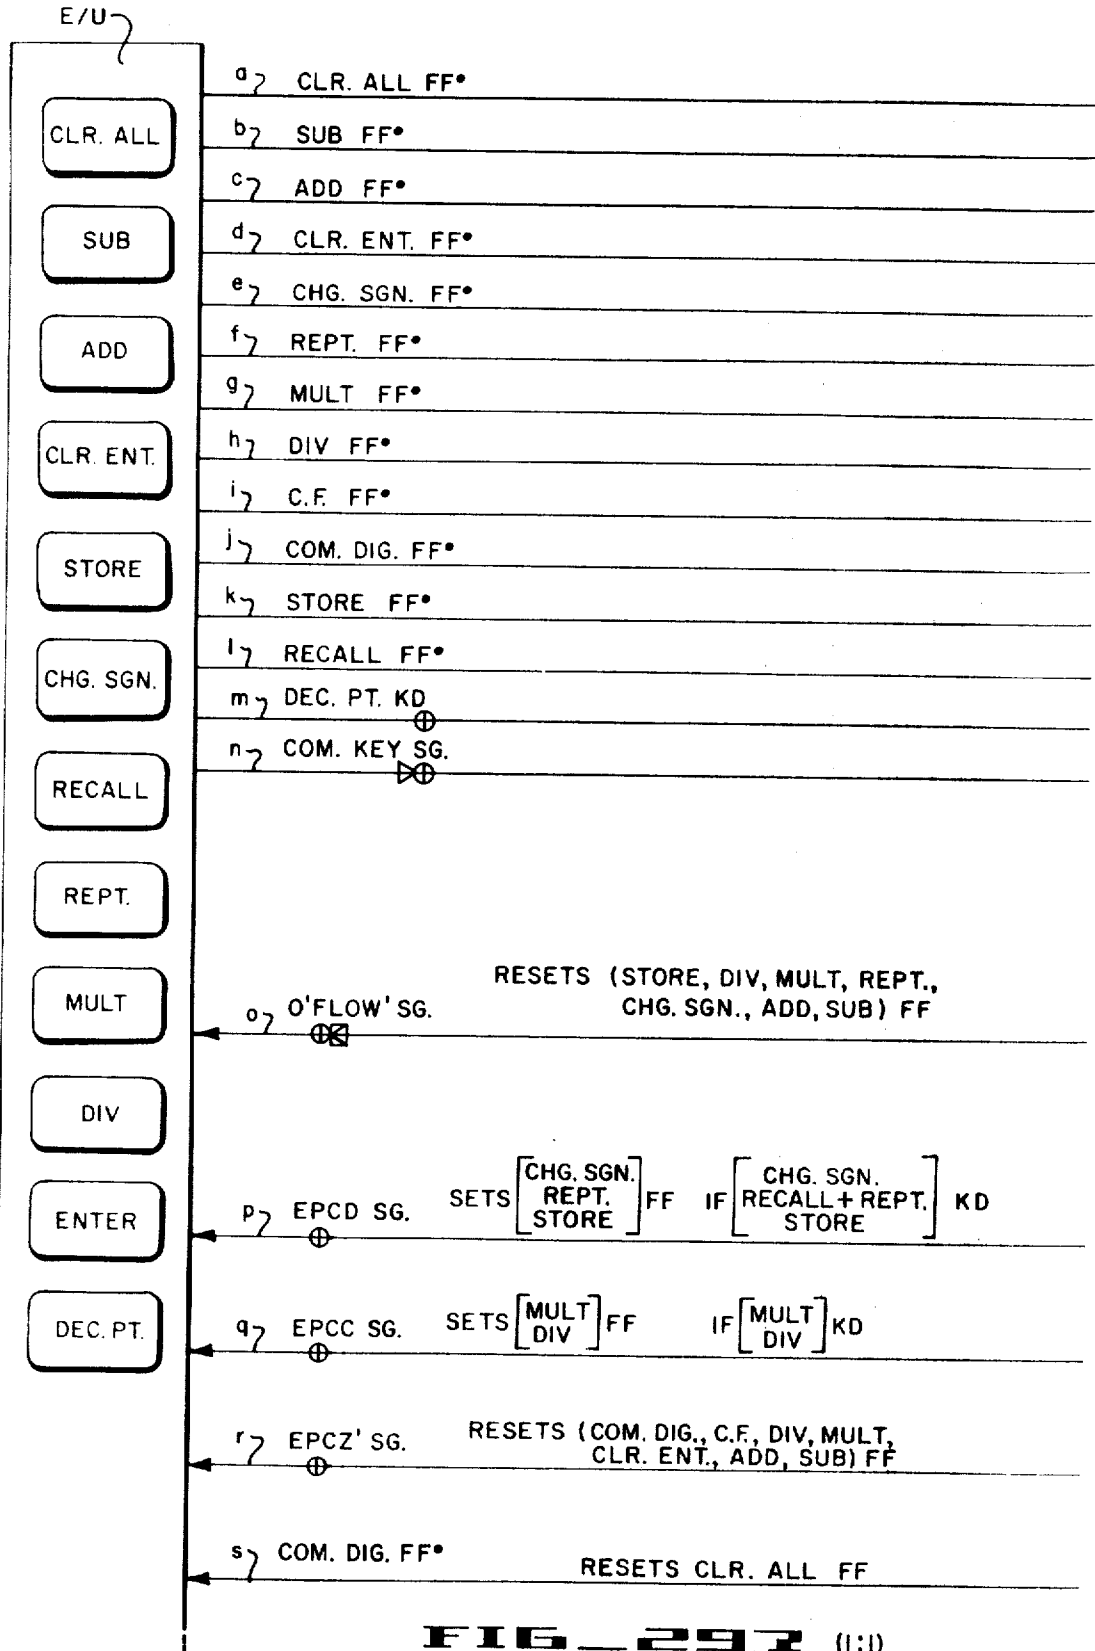 E/U
CLR. ALL
SUB
ADD
CLR. ENT.
STORE
CHG. SGN.
RECALL
REPT.
MULT
DIV
ENTER
DEC. PT.
a CLR. ALL FF•
b SUB FF•
c ADD FF•
d CLR. ENT. FF•
e CHG. SGN. FF•
f REPT. FF•
g MULT FF•
h DIV FF•
i C.F. FF•
j COM. DIG. FF•
k STORE FF•
l RECALL FF•
m DEC. PT. KD
n COM. KEY SG.
o O'FLOW' SG.
RESETS (STORE, DIV, MULT, REPT.,
CHG. SGN., ADD, SUB) FF
p EPCD SG.
SETS [CHG. SGN. REPT. STORE] FF IF [CHG. SGN. RECALL + REPT. STORE] KD
q EPCC SG.
SETS [MULT DIV] FF IF [MULT DIV] KD
r EPCZ' SG.
RESETS (COM. DIG., C.F., DIV, MULT,
CLR. ENT., ADD, SUB) FF
s COM. DIG. FF•
RESETS CLR. ALL FF
FIG_297 (1:1)